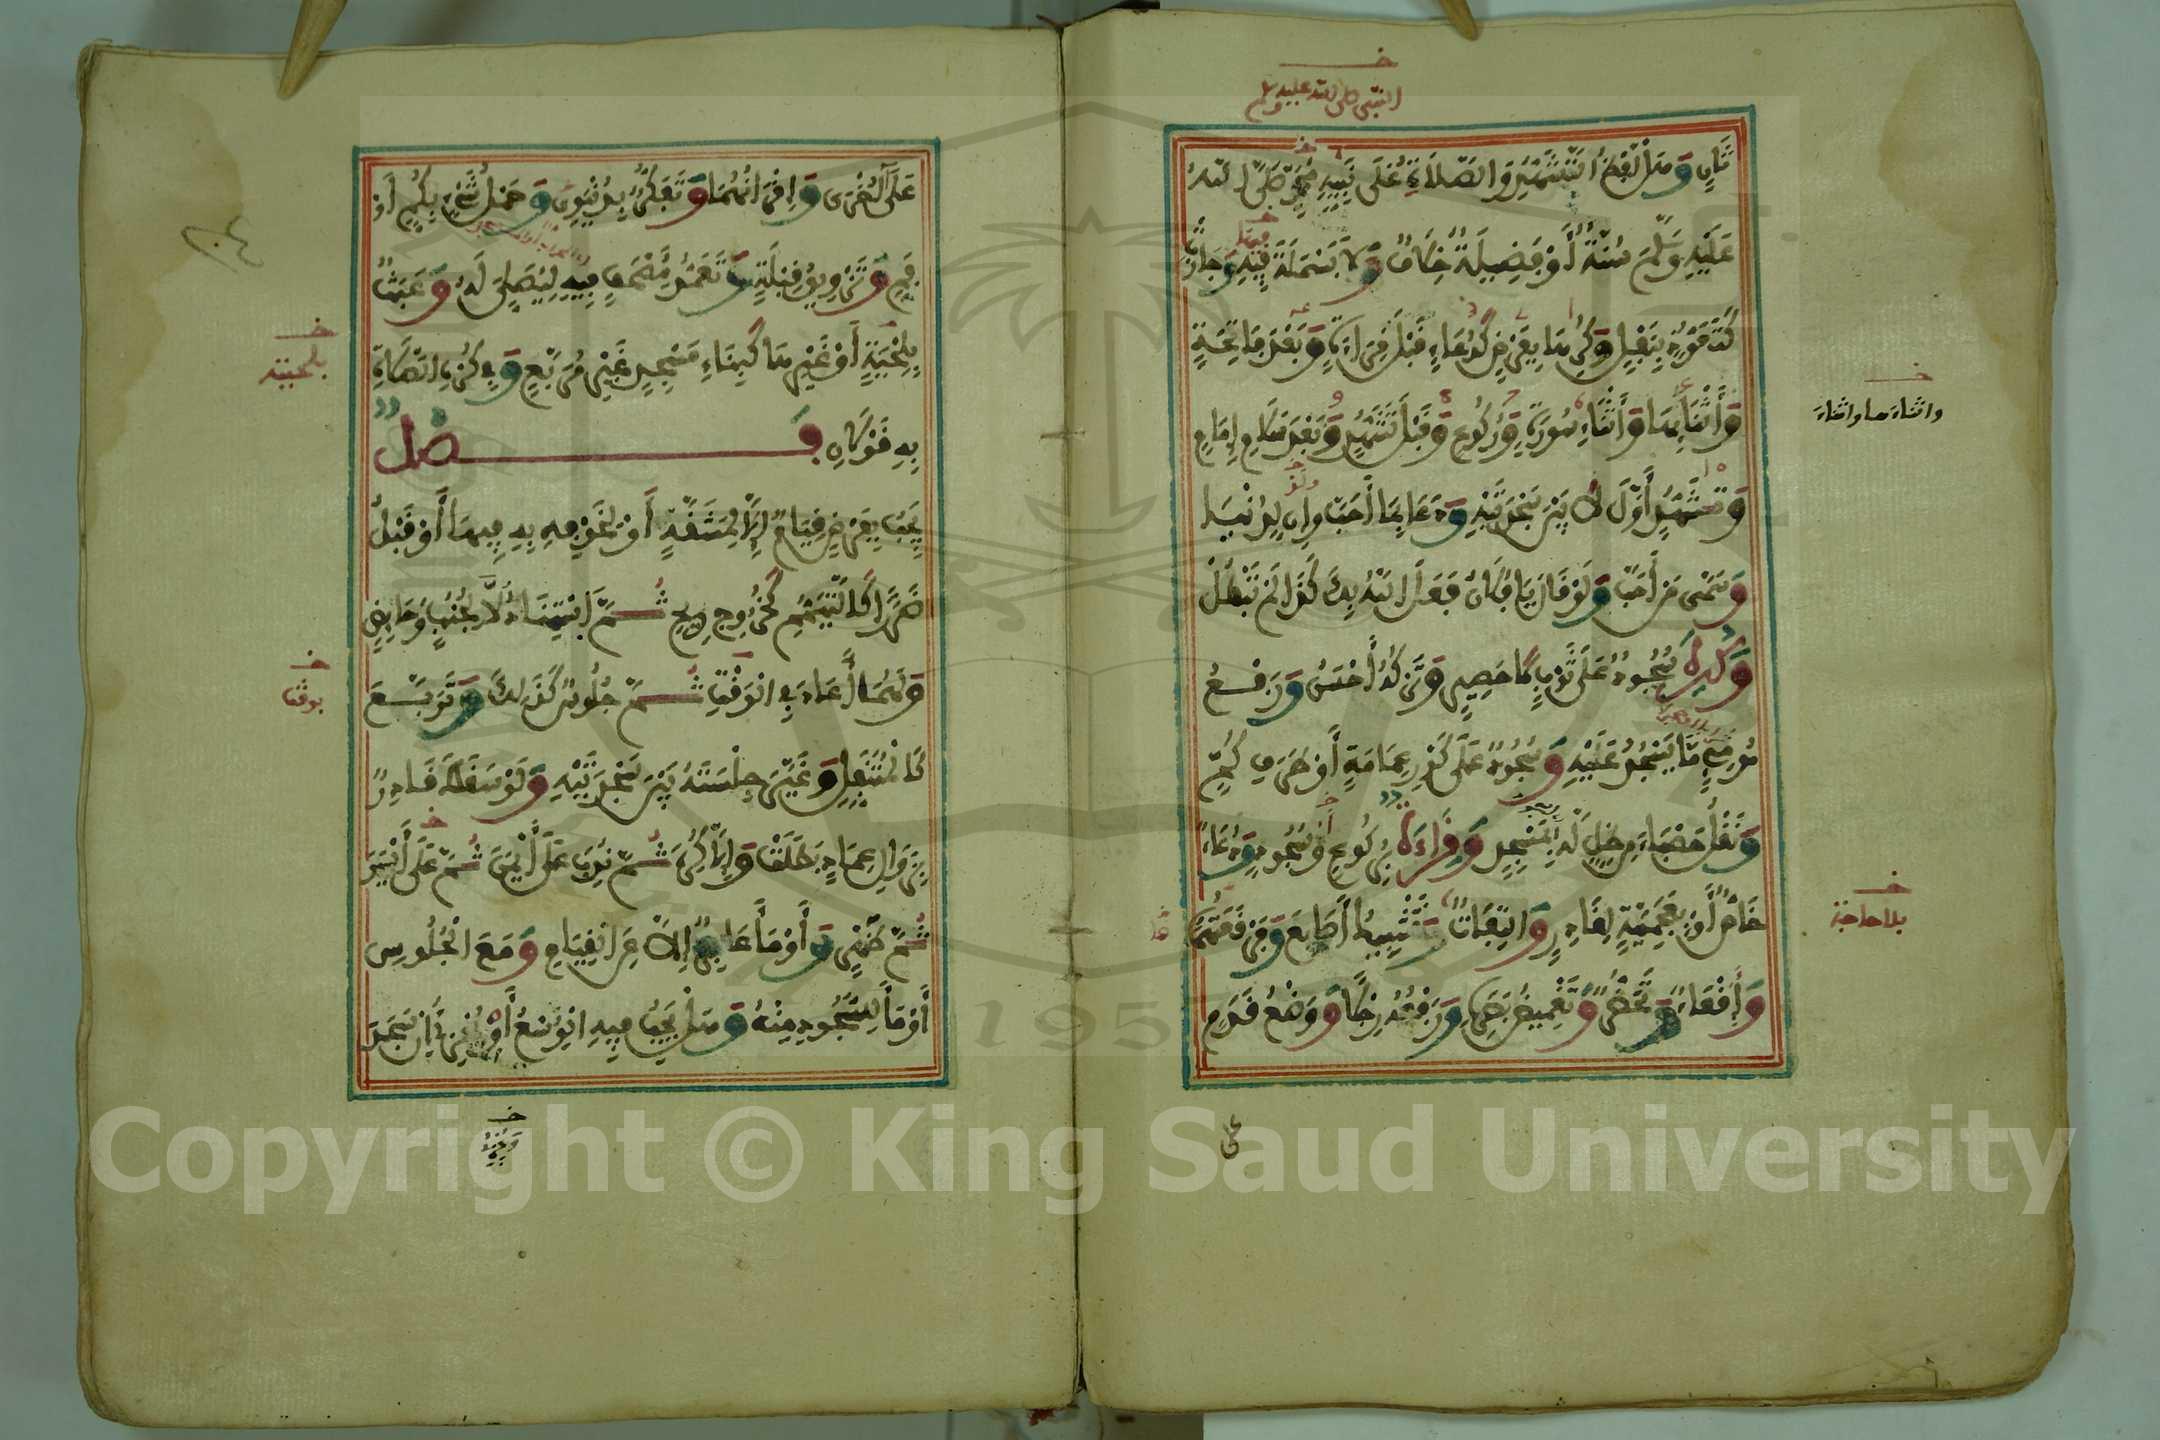 النبي صلى الله عليه وسلم
ثان وهل لفظ التشهد والصلاة على نبيه محمد صلى الله
عليه وسلم سنة أو فضيلة خلاف ولا بسملة فيه وجازت
كتعوذ بنفل وكرها بفرض كدعاء قبل قراءة وبعد فاتحة
وأثناءها وأثناء سورة وركوع وقبل تشهد وبعد سلام إمام
واثناءها واثناء
وتشهد أول لا بين سجدتيه ودعا بما أحب وإن لدنيا
وسمى من أحب ولو قال يا فلان فعل الله بك كذا لم تبطل
وكره سجود على ثوب لا حصير وتركه أحسن ورفع
مومئ ما يسجد عليه وسجود على كور عمامة أو طرف كم
ونقل حصباء من ظل له بمسجد وقراءة بركوع أو سجود ودعاء
خاص أو بعجمية لقادر والتفات وتشبيك أصابع وفرقعتها
بلا حاجة
وإقعاء وتخصر وتغميض بصره ورفعه رجلا ووضع قدم
على
على الأخرى وإقرانهما وتفكر بدنيوي وحمل شيء بكم أو
فم وتزويق قبلة وتعمد مصحف فيه ليصلي له وعبث
بلحية أو غيرها كبناء مسجد غير مربع وفي كره الصلاة
بلحيته
به قولان فصل
يجب بفرض قيام إلا لمشقة أو لخوفه به فيها أو قبل
ضررا كالتيمم كخروج ريح ثم استناد لا لجنب وحائض
ولهما أعاد في الوقت ثم جلوس كذلك وتربع
بوقت
كالمتنفل وغير جلسته بين سجدتيه ولو سقط قادر
بزوال عماد بطلت وإلا كره ثم ندب على أيمن ثم على أيسر
ثم ظهر وأومأ عاجز إلا عن القيام ومع الجلوس
أومأ للسجود منه وهل يجب فيه الوسع أو يجزئ إن سجد
Copyright © King Saud University
1957